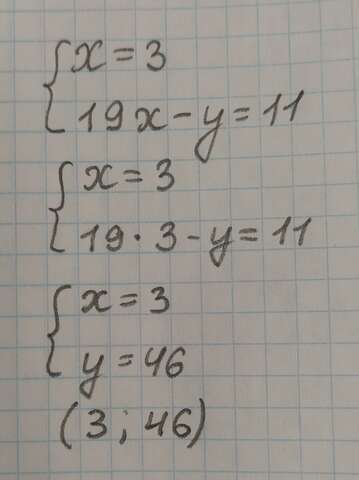 x = 3
19x - y = 11
x = 3
19 · 3 - y = 11
x = 3
y = 46
(3 ; 46)